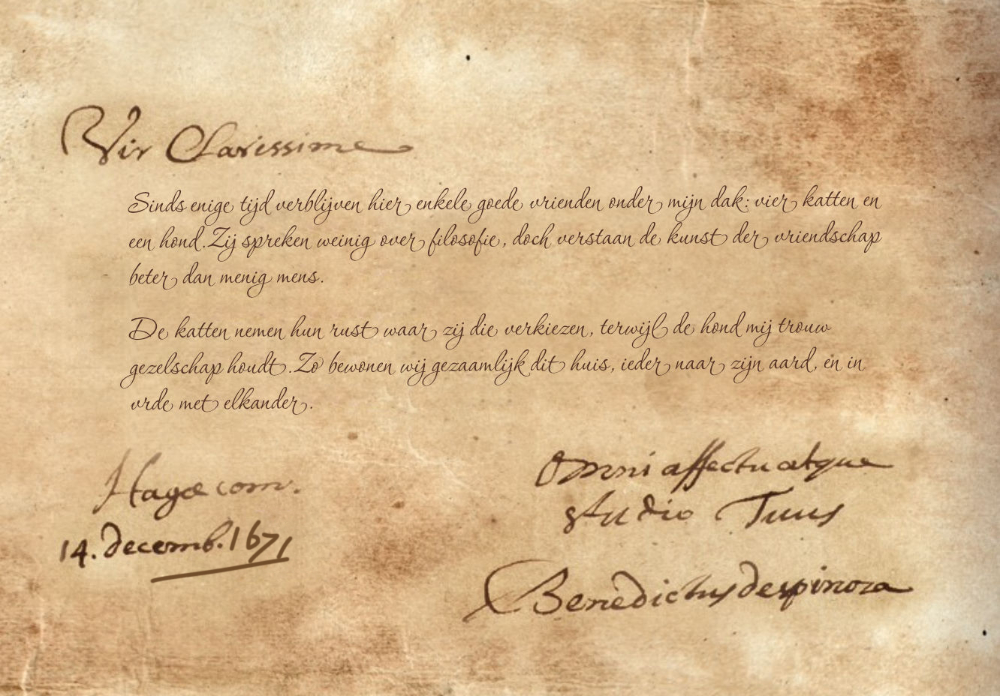 Vir Clarissime
Sinds enige tijd verblijven hier enkele goede vrienden onder mijn dak: vier katten en
een hond. Zij spreken weinig over filosofie, doch verstaan de kunst der vriendschap
beter dan menig mens.
De katten nemen hun rust waar zij die verkiezen, terwijl de hond mij trouw
gezelschap houdt. Zo bewonen wij gezaamlijk dit huis, ieder naar zijn aard, en in
vrde met elkander.
Hagæ com.
14. decemb. 1671
Omni affectu atque
studio Tuus
Benedictus despinoza